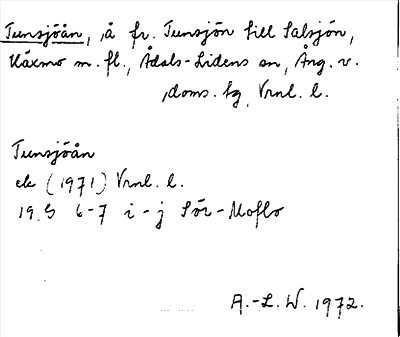 Tunsjöån, å fr. Tunsjön till Salsjön,
Kläxmo m. fl., Ådals-Lidens sn, Ång. v.
doms. tg, Vrnl. l.
Tunsjöån
ek (1971) Vrnl. l.
19 G 6-7 i-j Sör-Moflo
A.-L. W. 1972.